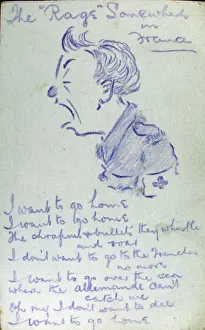 The "Rage" Somewhere
in
France
I want to go home
I want to go home
The shrapnel & bullets they whistle
and roar
I dont want to go to the trenches
no more
I want to go over the sea
where the allemande can't
catch me
Oh my I don't want to die
I want to go home